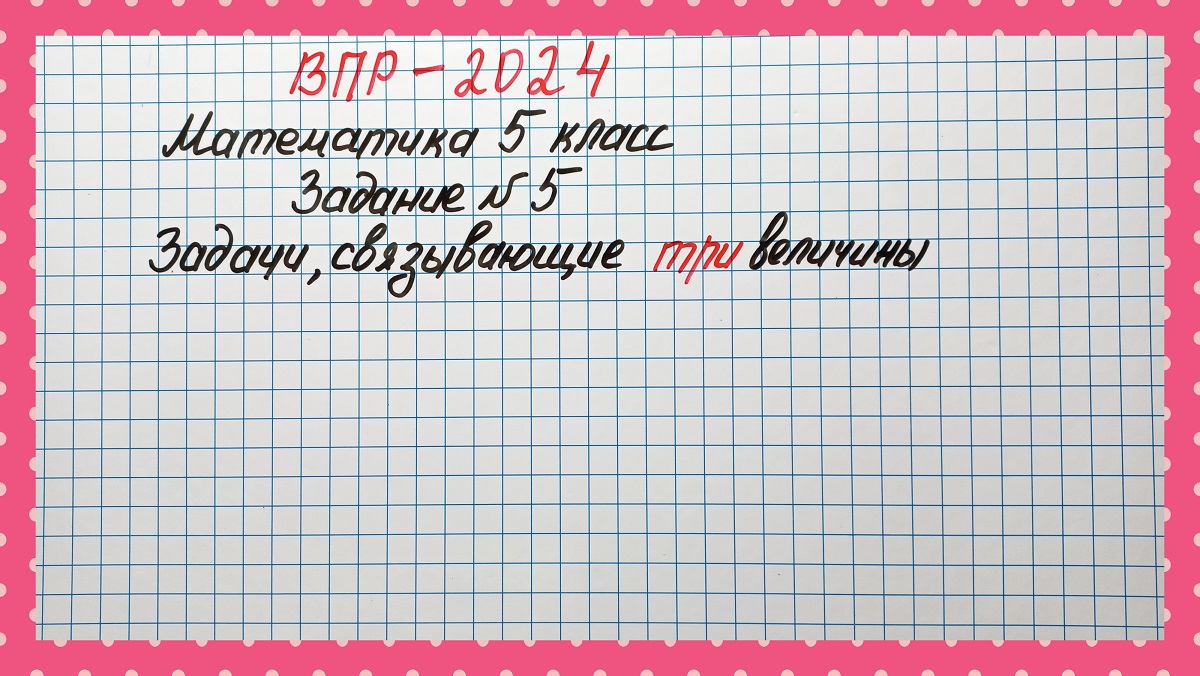 ВПР - 2024
Математика 5 класс
Задание N 5
Задачи, связывающие три величины